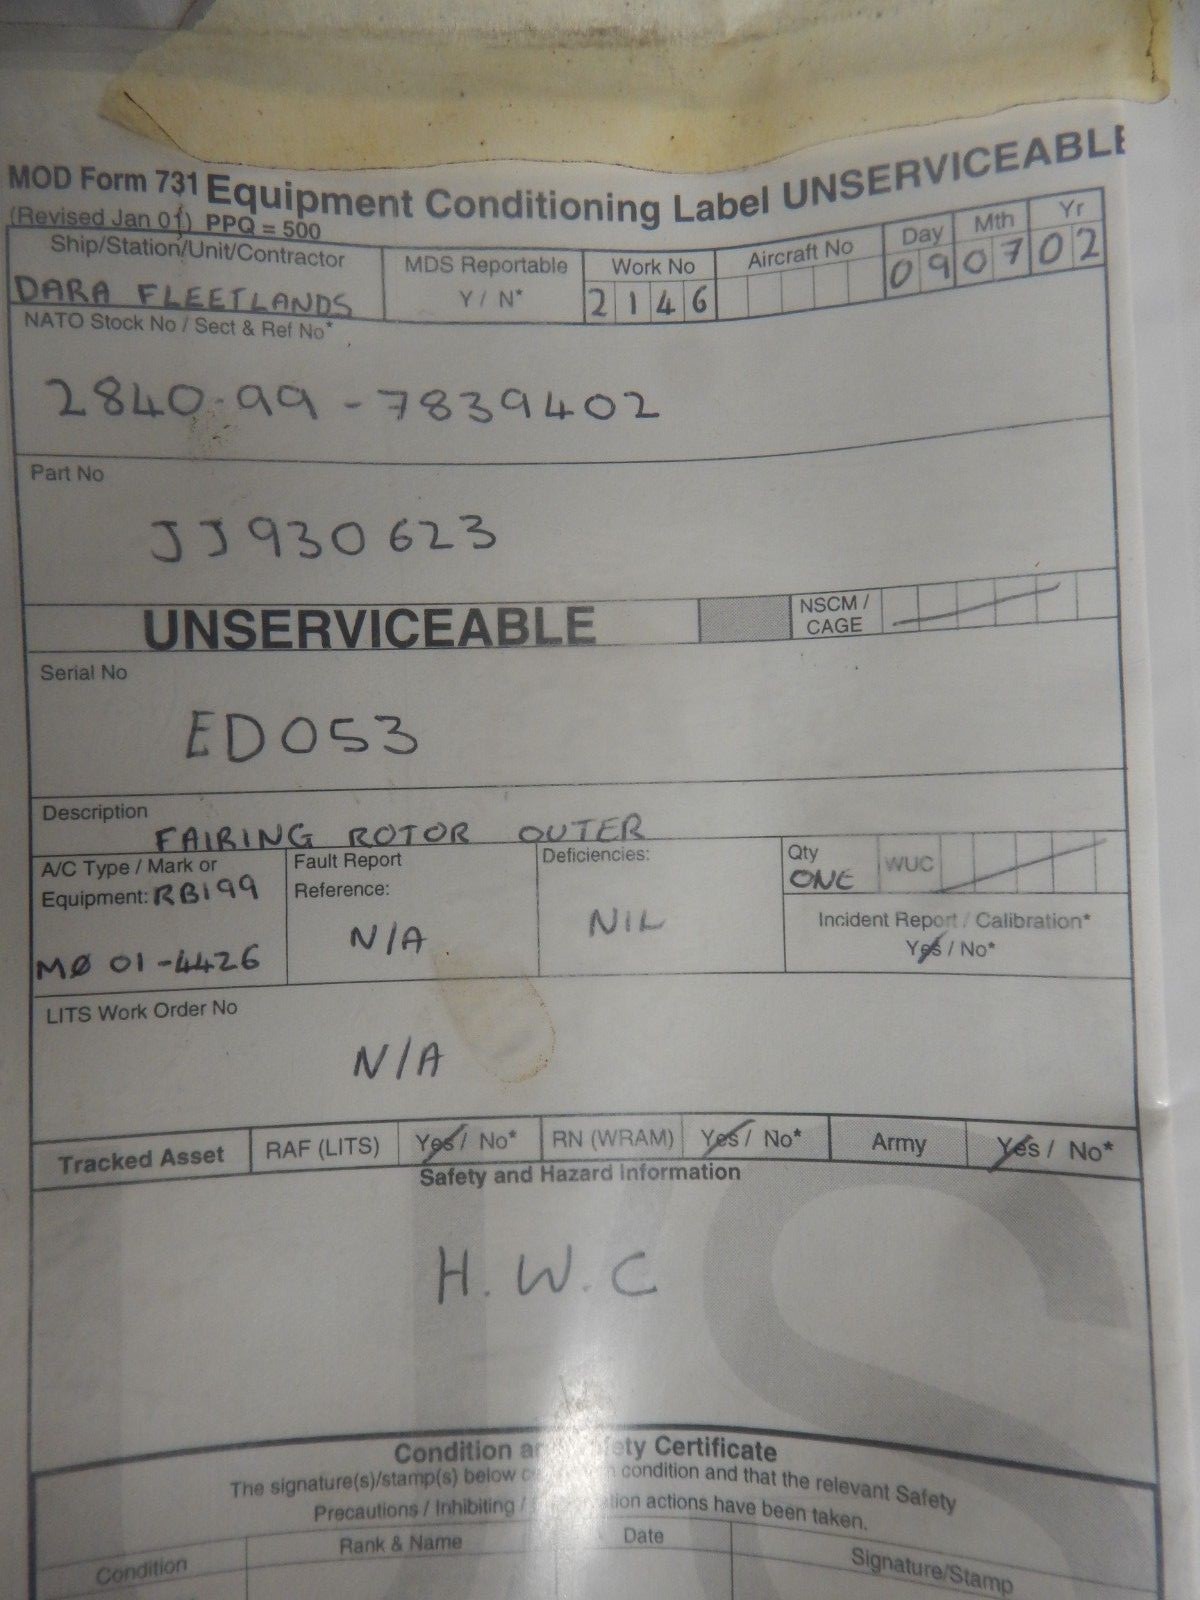 MOD Form 731 Equipment Conditioning Label UNSERVICEABLE
(Revised Jan 01) PPQ = 500
Ship/Station/Unit/Contractor
DARA FLEETLANDS
MDS Reportable
Y / N*
Work No
2146
Aircraft No
Day Mth Yr
09 07 02
NATO Stock No / Sect & Ref No*
2840-99-7839402
Part No
JJ930623
UNSERVICEABLE
NSCM /
CAGE
Serial No
ED053
Description
FAIRING ROTOR OUTER
A/C Type / Mark or
Equipment: RB199
MØ 01-4426
Fault Report
Reference:
N/A
Deficiencies:
NIL
Qty
ONE
WUC
Incident Report / Calibration*
Yes / No*
LITS Work Order No
N/A
Tracked Asset RAF (LITS) Yes / No* RN (WRAM) Yes / No* Army Yes / No*
Safety and Hazard Information
H.W.C
Condition Certificate
The signature(s)/stamp(s) below condition and that the relevant Safety
Precautions / Inhibiting / actions have been taken.
Condition
Rank & Name
Date
Signature/Stamp